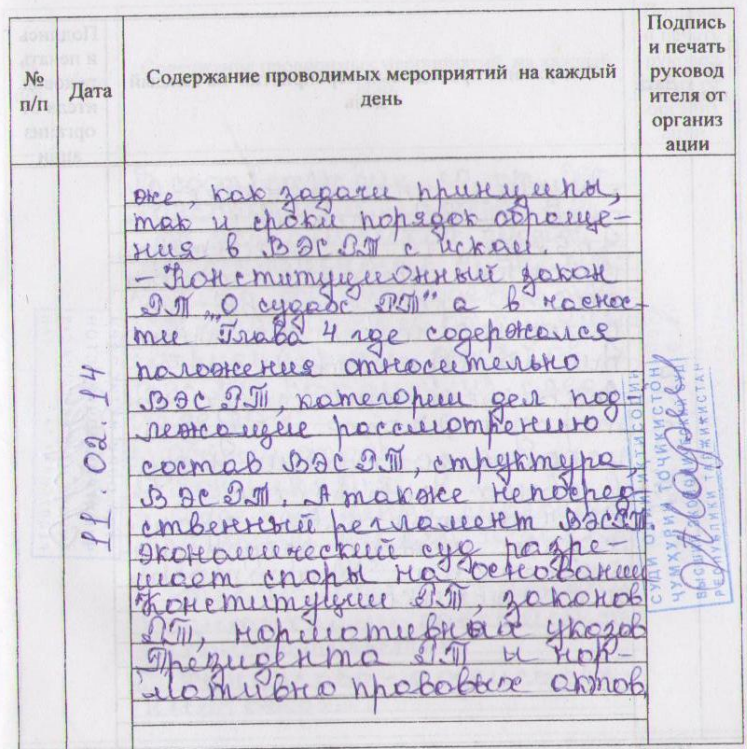 №
п/п
Дата
Содержание проводимых мероприятий на каждый
день
Подпись
и печать
руковод
ителя от
организ
ации
11.02.14
же, как задачи принципы,
так и сроки порядок обраще-
ния в ВЭС РТ с иском
– Конституционный закон
РТ „О судах РТ" а в часнос-
ти Глава 4 где содержался
положения относительно
ВЭС РТ, категории дел под-
лежащие рассмотрению
состав ВЭС РТ, структура
ВЭС РТ. А также непосред-
ственный регламент ВЭС РТ
экономический суд разре-
шает споры на основании
Конституции РТ, законов
РТ, нормативных указов
Президента РТ и нор-
мативно прововых актов,
СУДИ ОЛИИ ИҚТИСОДИИ
ҶУМҲУРИИ ТОҶИКИСТОН
ВЫСШИЙ ЭКОНОМИЧЕСКИЙ СУД
РЕСПУБЛИКИ ТАДЖИКИСТАН